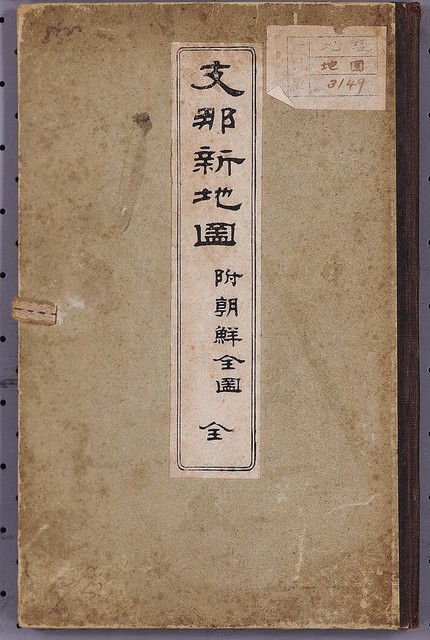 支那新地圖
附朝鮮全圖
全
地圖
3149